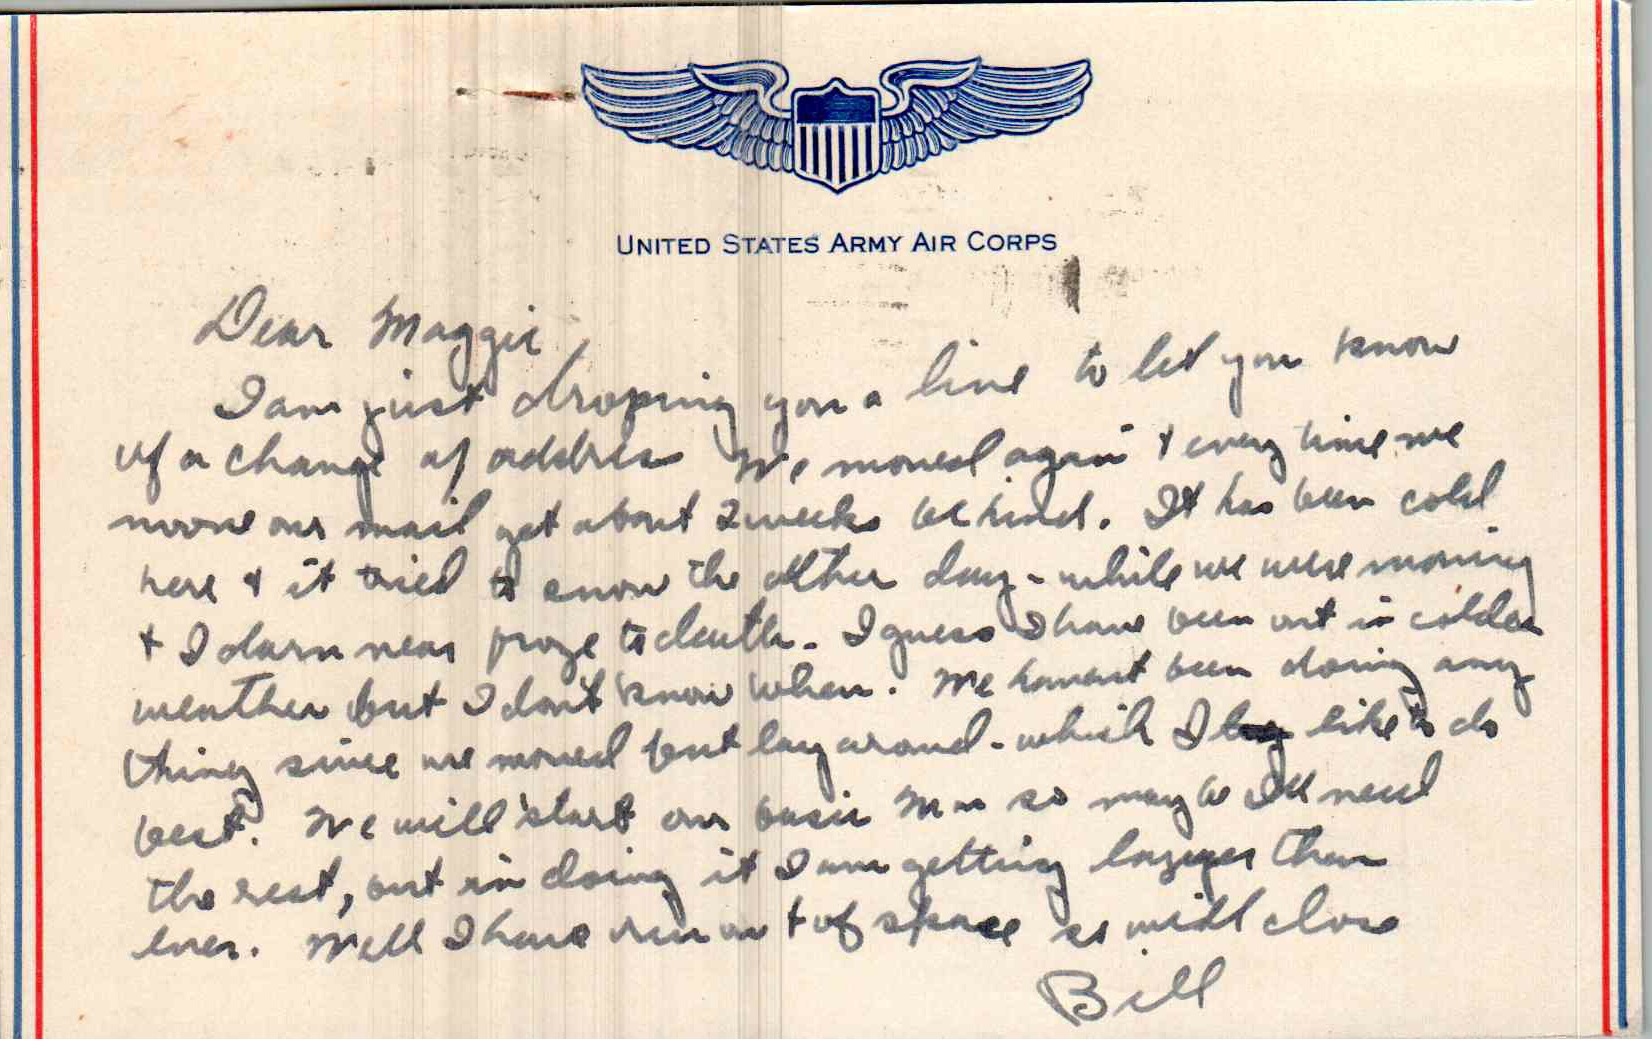 UNITED STATES ARMY AIR CORPS
Dear Maggie
I am just droping you a line to let you know
of a change of address We moved again & every time we
move our mail get about 2 weeks behind. It has been cold
here & it tried to snow the other day - while we were moving
& I darn near froze to death. I guess I have been out in colder
weather but I don't know when. We havent been doing any
thing since we moved but lay around - which I like to do
best. We will start our basic Mon so maybe I'll need
the rest, but in doing it I am getting lazyer than
ever. Well I have run out of space so will close
Bill